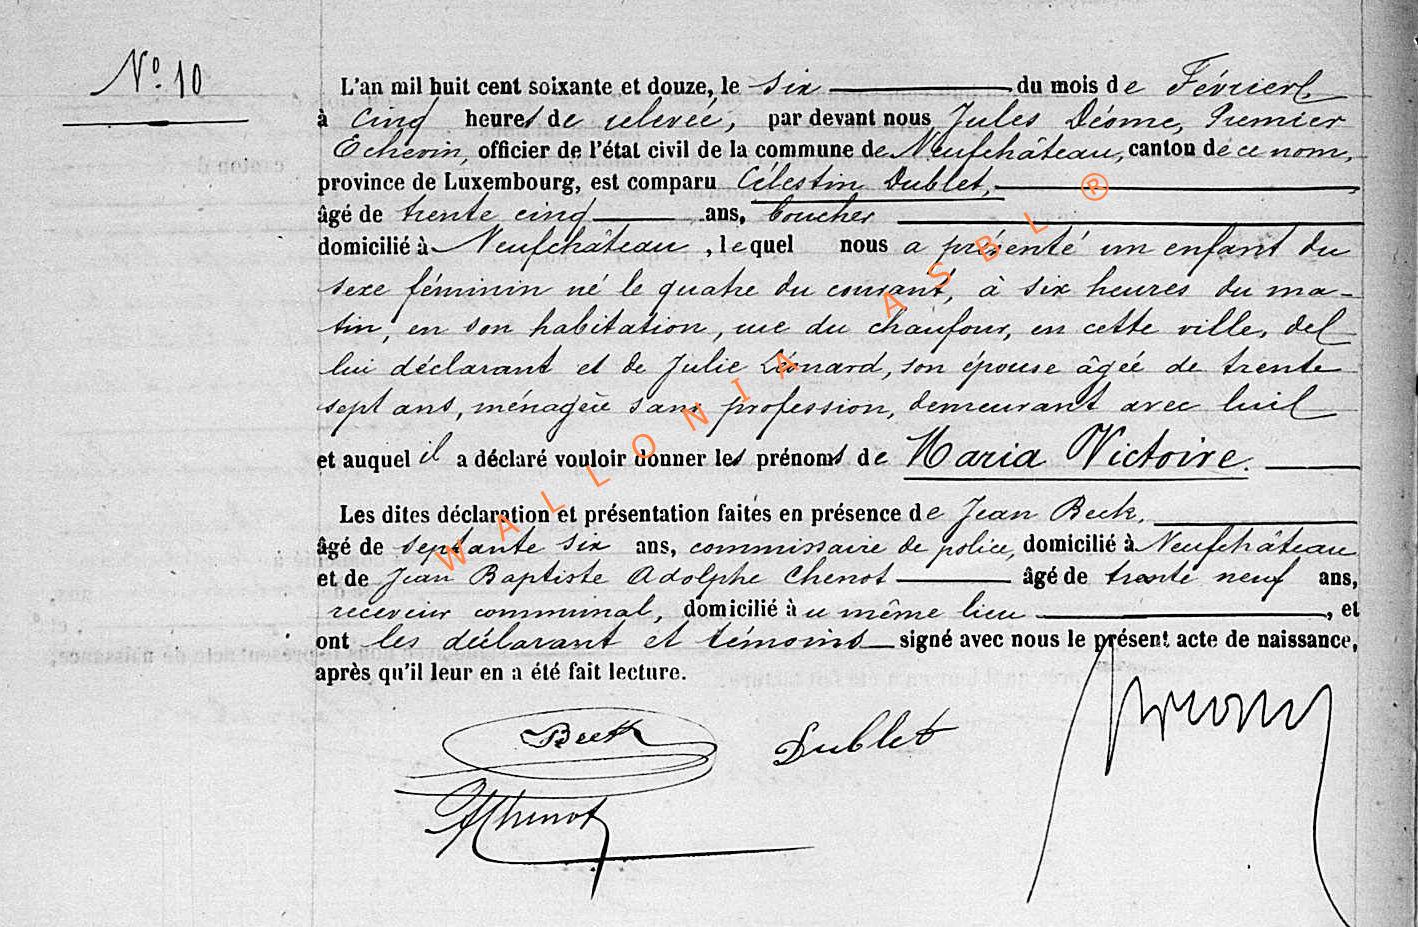 N° 10
L'an mil huit cent soixante et douze, le six du mois de Février
à cinq heures de relevée, par devant nous Jules Déome, Premier
Echevin, officier de l'état civil de la commune de Neufchâteau, canton de ce nom,
province de Luxembourg, est comparu Célestin Dublet,
âgé de trente cinq ans, boucher
domicilié à Neufchâteau, lequel nous a présenté un enfant du
sexe féminin né le quatre du courant, à six heures du ma-
tin, en son habitation, rue du chaufour, en cette ville, de
lui déclarant et de Julie Léonard, son épouse âgée de trente
sept ans, ménagère sans profession, demeurant avec lui
et auquel il a déclaré vouloir donner les prénoms de Maria Victoire.
Les dites déclaration et présentation faites en présence de Jean Beck,
âgé de septante six ans, commissaire de police, domicilié à Neufchâteau
et de Jean Baptiste Adolphe Chenot âgé de trente neuf ans,
receveur communal, domicilié à u même lieu, et
ont les déclarant et témoins signé avec nous le présent acte de naissance,
après qu'il leur en a été fait lecture.
Beck Dublet
AChenot
WALLONIA ASBL ®